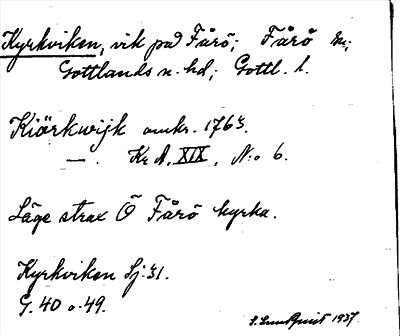 Kyrkviken, vik på Fårö; Fårö sn;
Gottlands n. hd; Gottl. l.
Kiörkwijk omkr. 1763.
— . Kr A. XIX, N:o 6.
Läge strax Ö Fårö kyrka.
Kyrkviken Sj: 31.
G. 40 o. 49.
S. Lundquist 1937.